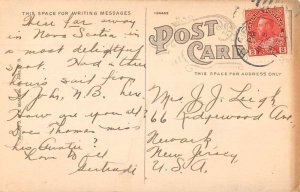 THIS SPACE FOR WRITING MESSAGES
POST CARD
THIS SPACE FOR ADDRESS ONLY
Here far away
in Nova Scotia in
a most delightful
spot. Had a three
hours sail from
St. John, N.B. here.
How are you all?
Does Thomas miss
his Auntie?
Love to all
Gertrude
Mrs. J. J. Leigh
66 Ridgewood Ave
Newark
New Jersey
U.S.A.